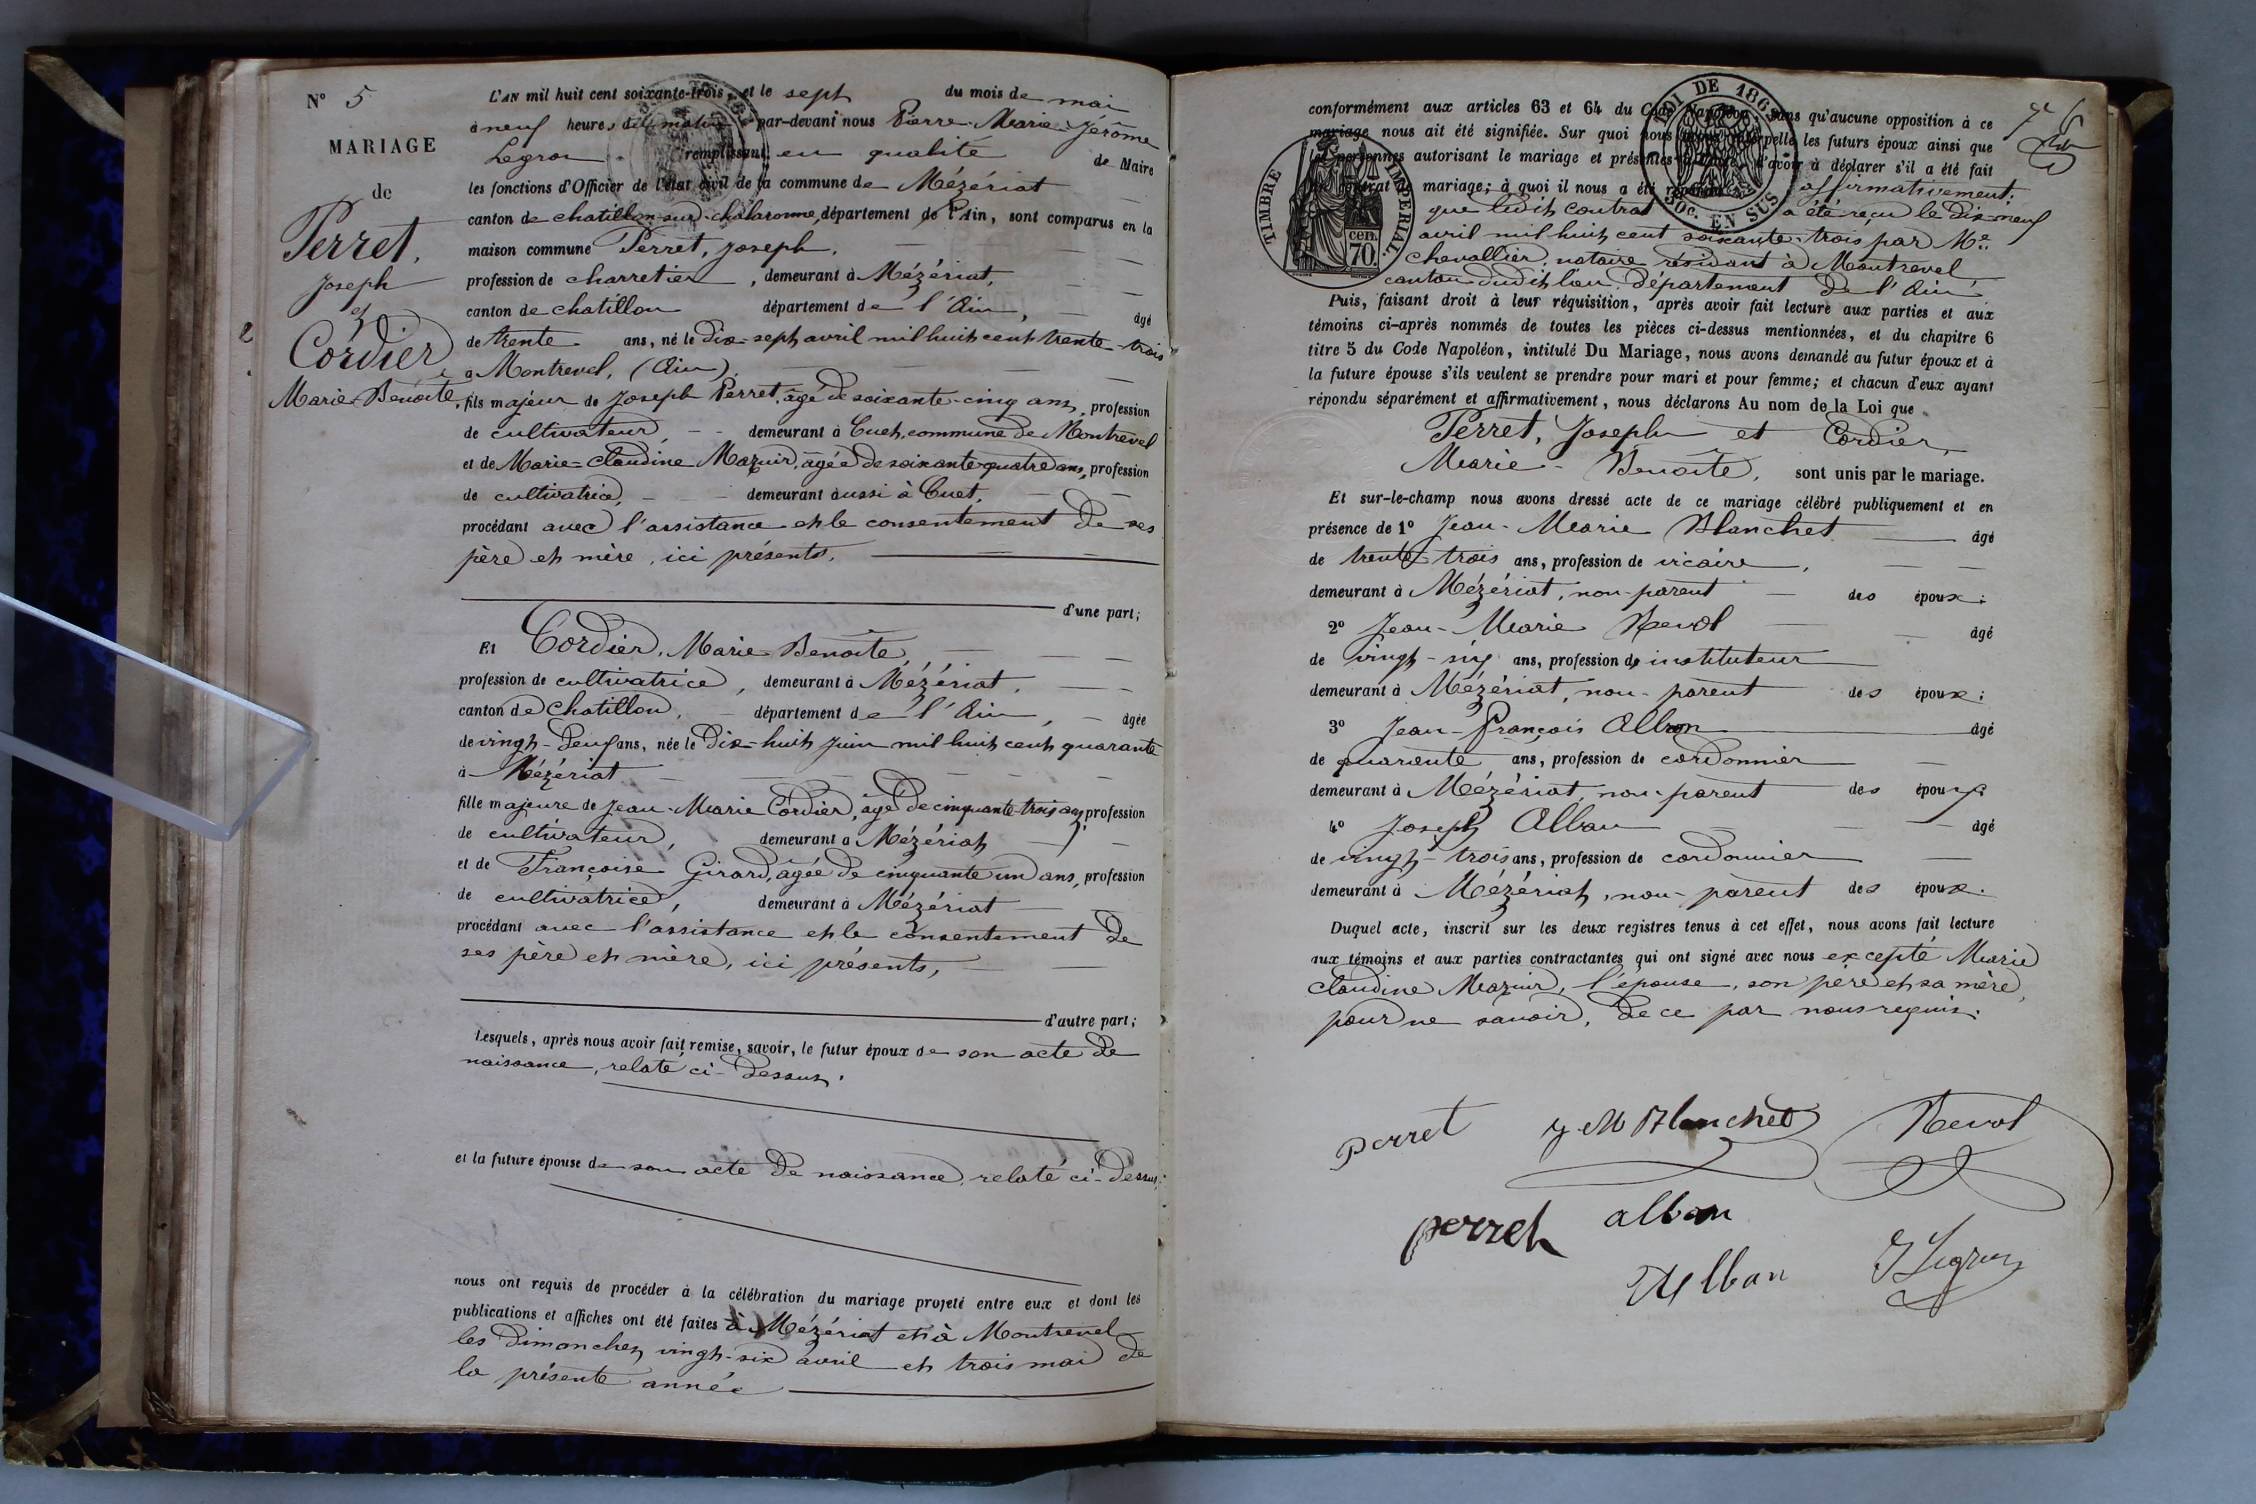 N° 5
MARIAGE
de
Perret,
Joseph
et
Cordier
Marie-Benoite,
2
L'AN mil huit cent soixante-trois, et le sept du mois de mai
à neuf heures du matin par-devant nous Pierre-Marie-Jérôme
Legron remplissant en qualité de Maire
les fonctions d'Officier de l'état civil de la commune de Mézériat
canton de chatillon-sur-chalaronne, département de l'Ain, sont comparus en la
maison commune Perret, Joseph,
profession de charretier, demeurant à Mézériat,
canton de chatillon département de l'Ain, âgé
de trente ans, né le dix-sept avril mil huit cent trente-trois
à Montrevel, (Ain),
fils majeur de Joseph Perret, âgé de soixante-cinq ans, profession
de cultivateur, demeurant à Cuet, commune de Montrevel
et de Marie-Claudine Mazuir, âgée de soixante-quatre ans, profession
de cultivatrice, demeurant aussi à Cuet,
procédant avec l'assistance et le consentement de ses
père et mère, ici présents,
d'une part;
Et Cordier, Marie-Benoite,
profession de cultivatrice, demeurant à Mézériat,
canton de Chatillon, département de l'Ain, âgée
de vingt-deux ans, née le dix-huit juin mil huit cent quarante
à Mézériat
fille majeure de Jean-Marie Cordier, âgé de cinquante-trois ans, profession
de cultivateur, demeurant à Mézériat
et de Françoise Girard, âgée de cinquante un ans, profession
de cultivatrice, demeurant à Mézériat
procédant avec l'assistance et le consentement de
ses père et mère, ici présents,
d'autre part;
Lesquels, après nous avoir fait remise, savoir, le futur époux de son acte de
naissance, relaté ci-dessus,
et la future épouse de son acte de naissance, relaté ci-dessus,
nous ont requis de procéder à la célébration du mariage projeté entre eux et dont les
publications et affiches ont été faites à Mézériat et à Montrevel
les dimanches vingt-six avril et trois mai de
la présente année
conformément aux articles 63 et 64 du Code Napoléon, sans qu'aucune opposition à ce
mariage nous ait été signifiée. Sur quoi nous avons interpellé les futurs époux ainsi que
les personnes autorisant le mariage et présentes à l'acte, d'avoir à déclarer s'il a été fait
un contrat de mariage; à quoi il nous a été répondu affirmativement;
que ledit contrat a été reçu le dix-neuf
avril mil huit cent soixante-trois par Me
Chevallier, notaire résidant à Montrevel
canton dudit lieu, département de l'Ain
TIMBRE IMPERIAL
cen. 70.
LOI DE 1862
50c. EN SUS
Puis, faisant droit à leur réquisition, après avoir fait lecture aux parties et aux
témoins ci-après nommés de toutes les pièces ci-dessus mentionnées, et du chapitre 6
titre 5 du Code Napoléon, intitulé Du Mariage, nous avons demandé au futur époux et à
la future épouse s'ils veulent se prendre pour mari et pour femme; et chacun d'eux ayant
répondu séparément et affirmativement, nous déclarons Au nom de la Loi que
Perret, Joseph et Cordier,
Marie-Benoite, sont unis par le mariage.
Et sur-le-champ nous avons dressé acte de ce mariage célébré publiquement et en
présence de 1° Jean-Marie Blanchet âgé
de trente-trois ans, profession de vicaire,
demeurant à Mézériat, non-parent des époux;
2° Jean-Marie Revol âgé
de vingt-six ans, profession de instituteur
demeurant à Mézériat, non-parent des époux;
3° Jean-François Alban âgé
de quarante ans, profession de cordonnier
demeurant à Mézériat, non-parent des époux
4° Joseph Alban âgé
de vingt-trois ans, profession de cordonnier
demeurant à Mézériat, non-parent des époux.
Duquel acte, inscrit sur les deux registres tenus à cet effet, nous avons fait lecture
aux témoins et aux parties contractantes qui ont signé avec nous excepté Marie
Claudine Mazuir, l'épouse, son père et sa mère,
pour ne savoir, de ce par nous requis.
perret J M Blanchet Revol
perret alban
Alban J Legron